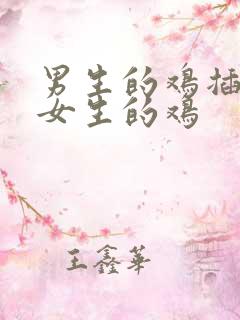 男生的鸡插
女生的鸡
王鑫华